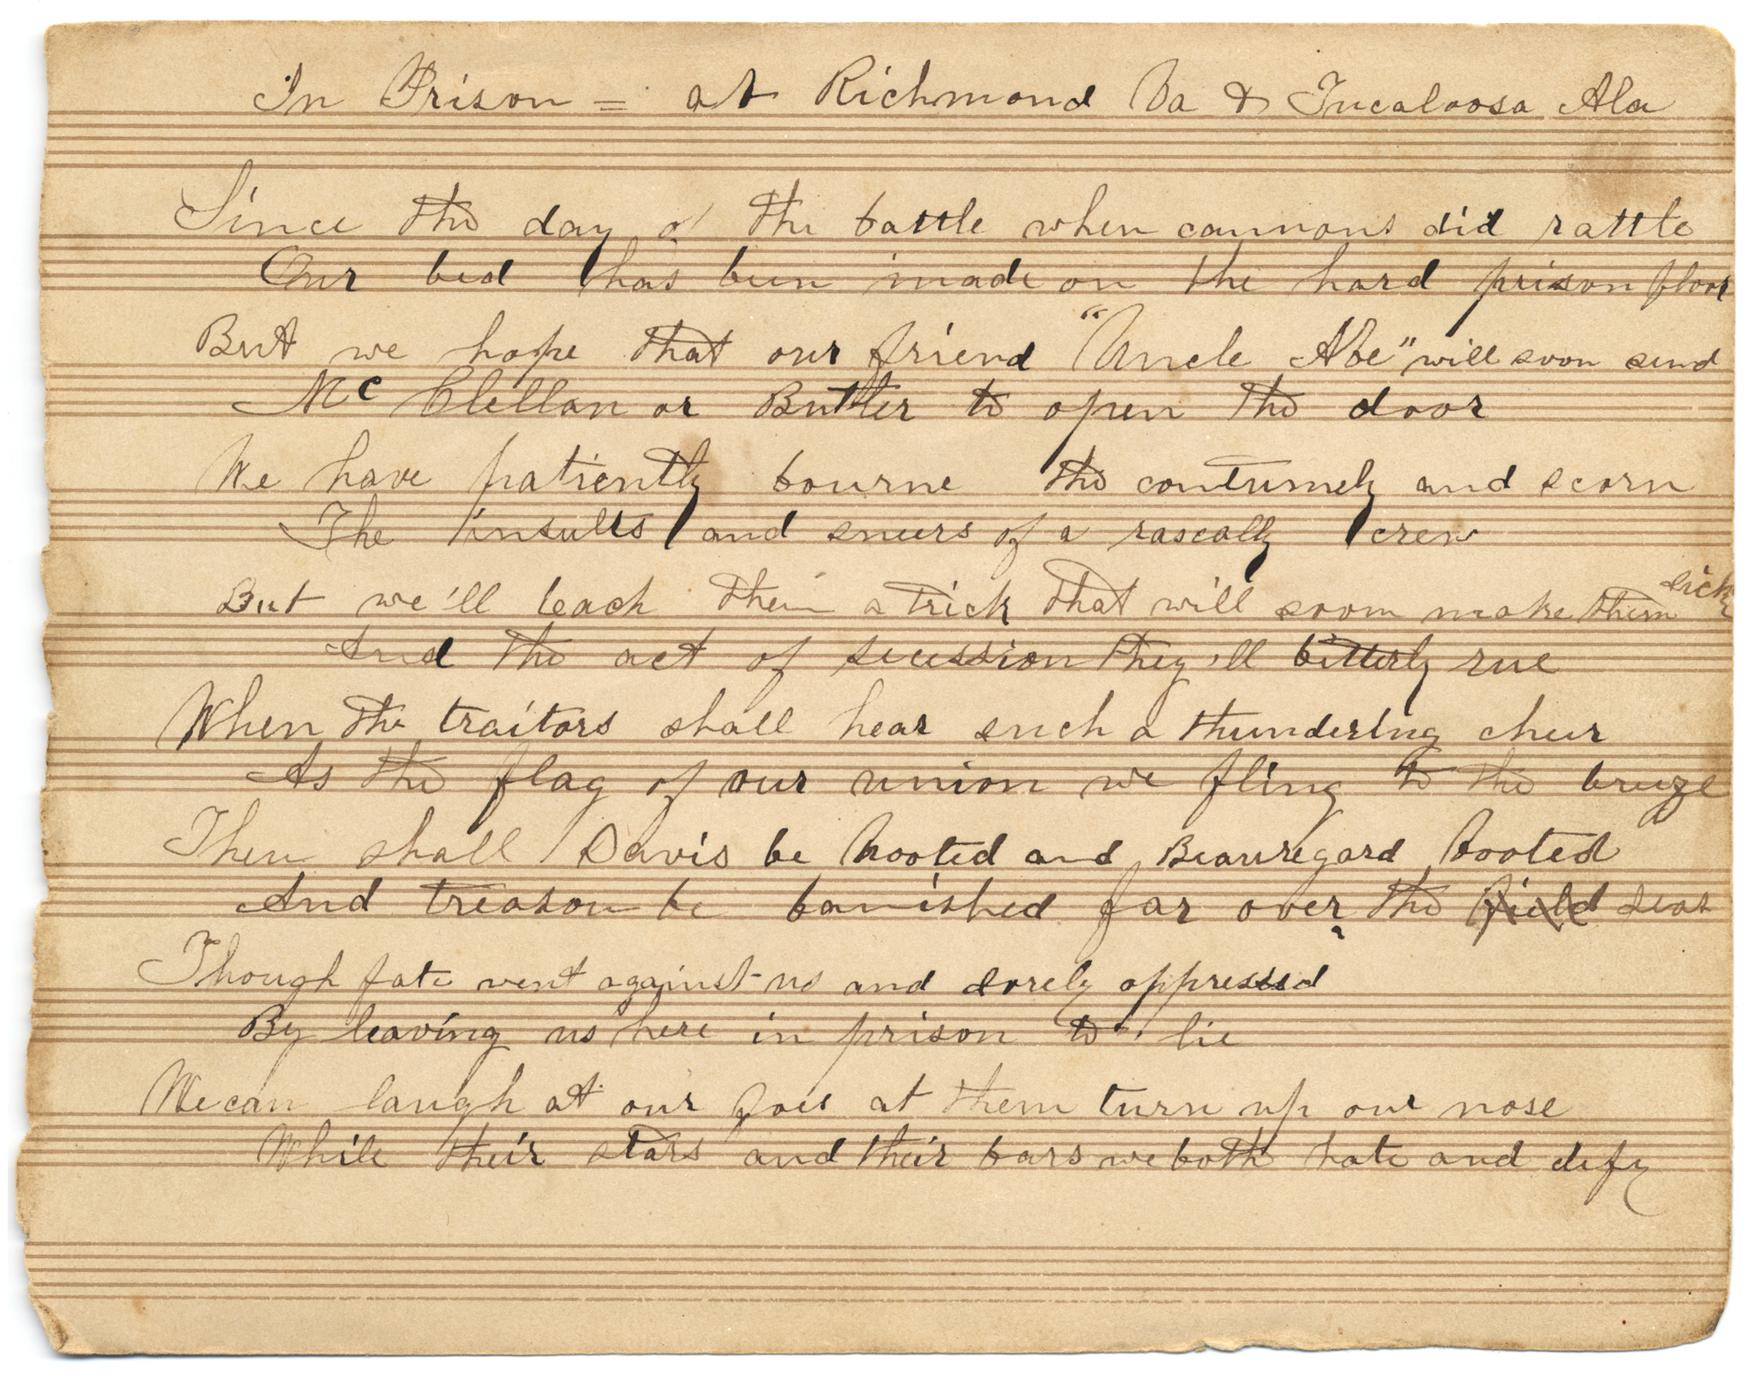 In Prison = at Richmond Va & Tucaloosa Ala
Since the day of the battle when cannons did rattle
Our bed has been made on the hard prison floor
But we hope that our friend "Uncle Abe" will soon send
Mc Clellan or Butler to open the door
We have patiently bourne the contumely and scorn
The insults and sneers of a rascally crew
But we'll teach them a trick that will soom make them sick
And the act of secession they'll bitterly rue
When the traitors shall hear such a thundering cheer
As the flag of our union we fling to the breeze
Then shall Davis be hooted and Beauregard booted
And treason be banished far over the field seas
Though fate went against us and sorely oppressed
By leaving us here in prison to lie
We can laugh at our foes at them turn up our nose
While their stars and their bars we both hate and defy